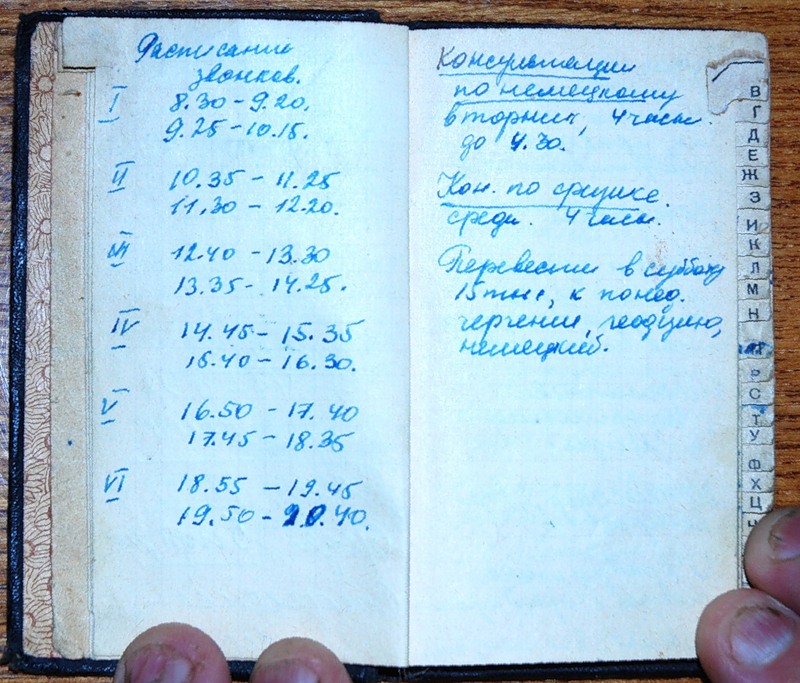 Расписание
звонков.
I 8.30 - 9.20.
9.25 - 10.15.
II 10.35 - 11.25
11.30 - 12.20.
III 12.40 - 13.30
13.35 - 14.25.
IV 14.45 - 15.35
15.40 - 16.30.
V 16.50 - 17.40
17.45 - 18.35
VI 18.55 - 19.45
19.50 - 20.40.
Консультации
по немецкому
вторник, 4 часа.
до 4.30.
Кон. по физике.
среда. 4 часа.
Перевести в субботу
15 тыс, к понед.
черчение, геодезию,
немецкий.
В
Г
Д
Е
Ж
З
И
К
Л
М
Н
Р
С
Т
У
Ф
Х
Ц